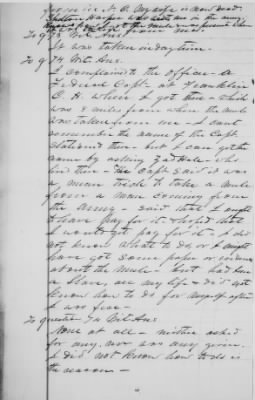 from in N. C. my wife is now dead.
from me.
To q 73 Wit. Ans:
It was taken in daytime.
To q 74 Wit. Ans:
I complained to the officer - a
Federal Capt. at Franklin
C. H. where I got then - which
was 8 miles from where the mule
was taken from me - I can't
remember the name of the Capt.
stationed then - but I can get the
name by asking - who
live there - the Capt. said it was
a mean trick to take a mule
from a man coming from
the army - said that I ought
to have pay for it - & told me
I would get pay for it - I did
not know what to do, or I might
have got some paper or evidence
about the mule - but had been
a slave, all my life & did not
know how to do for myself after
I was free -
To question Wit Ans:
None at all - neither asked
for any, nor was any given.
I did not know how to do is
the reason -